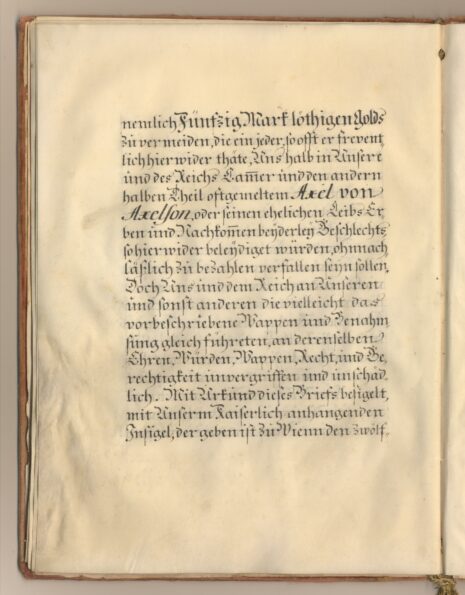 nemlich Fünfzig Mark löthigen Golds
zu vermeiden, die ein jeder, so offt er frevent
lich hier wider thäte, Uns halb in Unsere
und des Reichs Cam̅er und den andern
halben Theil oftgemeltem Axel von
Axelson, oder seinen ehelichen Leibs Er,
ben und Nachkom̅en beyderley Geschlechts
so hier wider beleydiget würden, ohnnach
läßlich zu bezahlen verfallen seyn sollen,
Doch Uns und dem Reich an Unseren
und sonst anderen die vielleicht das
vorbeschriebene Wappen und Benahm
sung gleich führeten, an derenselben
Ehren, Würden, Wappen, Recht, und Ge,
rechtigkeit unvergriffen und unschäd,
lich. Mit Urkund dieses Briefs besigelt,
mit Unserm Kaiserlich anhangenden
Insigel, der geben ist zu Wienn den zwölf,